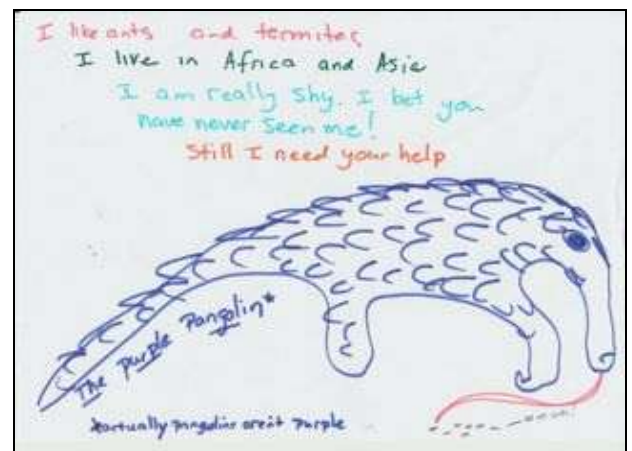 I like ants and termites
I live in Africa and Asia
I am really shy. I bet you
have never seen me!
Still I need your help
The purple Pangolin*
*actually pangolins aren't purple